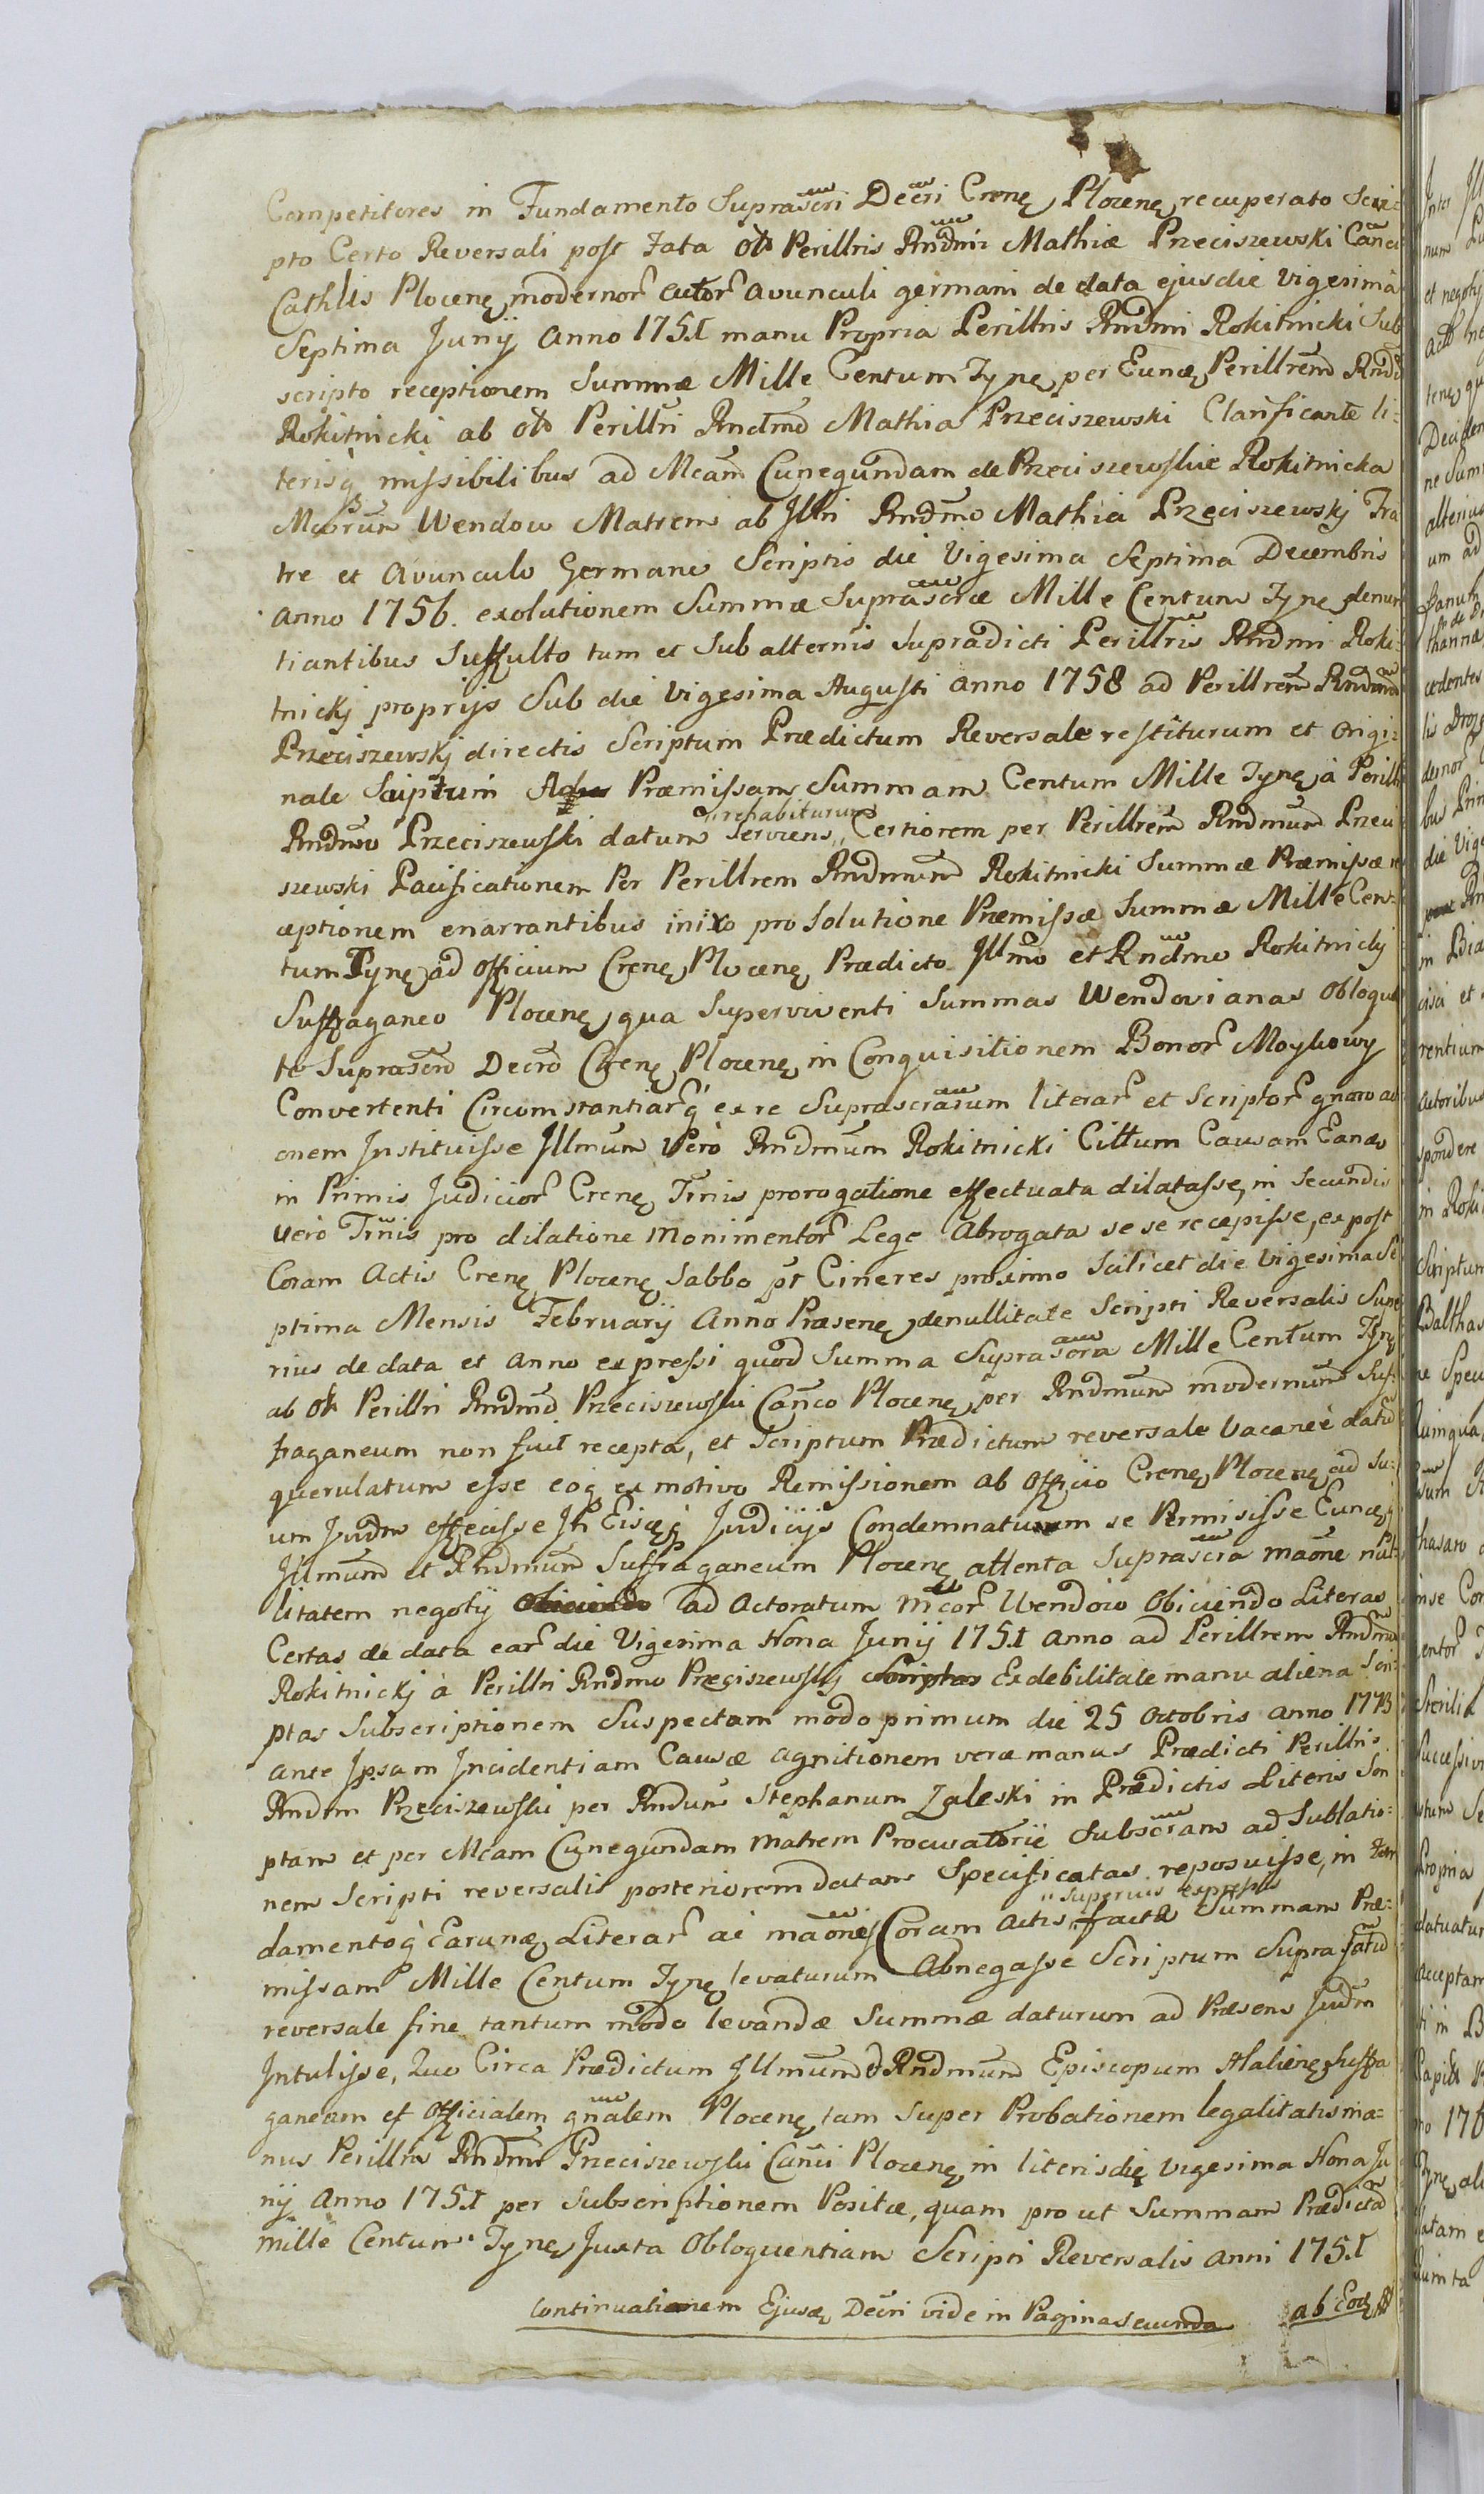 Competitores in Fundamento Suprascri Decri Crenę Plocenę recuperato Scri=
pto Certo Reversali post Fata olb Perillris Rndmi Mathiæ Przeciszewski Canci
Cathlis Plocenę modernor Actor avunculi germani de data ejus die Vigesima
Septima Junij Anno 1751 manu Propria Perillris Rndmi Rokitnicki Sub
scripto receptionem Summæ Mille Centum Tynę per Eundę Perillrem Rndm
Rokitnicki ab olb Perillri Rndmo Mathia Przeciszewski Clarificante li=
terisq missibilibus ad Mcam Cunegundam de Przeciszewskie Rokitnicka
Mcorum Wendow Matrem ab Illri Rndmo Mathia Przeciszewskj Fra
tre et Avunculo Germano Scriptis die Vigesima Septima Decembris
anno 1756. exolutionem Summæ Suprascræ Mille Centum Tynę denun
tiantibus Suffulto tum et Subalternis Supradicti Perillris Rndmi Roki=
tnickj proprijs Sub die Vigesima Augusti anno 1758 ad Perillrem Rndmum
Przeciszewskj directis Scriptum Prædictum Reversale restiturum et Origi=
nale Scriptum Præmissam Summam Centum Mille Tynę à Perillri
Rndmo Przeciszewski datum serviens "rehabiturum" Certiorem per Perillrem Rndmum Przeci
szewski Pacificationem Per Perillrem Rndmum Rokitnicki Summæ Præmissæ re
ceptionem enarrantibus inixo pro Solutione Præmissæ Summæ Mille Cen=
tum Tynę ad Officium Crenę Plocenę Prædicto Illmo et Rndmo Rokitnickj
Suffraganeo Plocenę qua Superviventi Summas Wendovianas Obloquen
te Suprascro Decro Crenę Plocenę in Conquisitionem Bonor Moykowy
Convertenti Circumstantiarq ex re Suprascrarum literar et Scriptor gnaro acti
onem Instituisse Illmum Verò Rndmum Rokitnicki Cittum Causam Eandę
in Primis Judicior Crenę Trnis prorogatione effectuata dilatasse, in Secundis
Verò Trnis pro dilatione Monimentor Lege Abrogata se se recepisse, ex post
Coram Actis Crenę Plocenę Sabbo pt Cineres proximo Scilicet die Vigesima Se
ptima Mensis Februarij Anno Præsenę de nullitate Scripti Reversalis Supe
rius de data et anno expressi quod Summa Suprascra Mille Centum Tynę
ab olb Perillri Rndmo Przeciszewski Canco Plocenę per Rndmum modernum Suf=
fraganeum non fuit recepta, et Scriptum Prædictum reversale Vacanee datum
querulatum esse eoq ex motivo Remissionem ab Officio Crenę Plocenę ad Su=
um Judm effecisse In Eisdęq Judicijs Condemnatum se Permisisse Eundęq
Illmum et Rndmum Suffraganeum Plocenę attenta Suprascra maone nul=
litatem negotij Obiciendo ad Actoratum Mcor Wendow Obiciendo Literas
Certas de data ear die Vigesima Nona Junij 1751 anno ad Perillrem Rndmum
Rokitnickj à Perillri Rndmo Przeciszewskj Scriptas Ex debilitate manu aliena Scri=
ptas Subscriptionem Suspectam modo primum die 25 Octobris anno 1773
ante Ipsam Incidentiam Causæ agnitionem veræ manus Prædicti Perillris
Rndm Przeciszewski per Rndum Stephanum Zaleski in Prædictis Literis Scri
ptam et per Mcam Cunegundam Matrem Procuratorie Subscram ad Sublatio=
nem Scripti reversalis posteriorem datam Specificatas reposuisse, in fun
damentoq Earundę Literar ac maones Coram Actis "superius expressis" factæ Summam Præ=
missam Mille Centum Tynę levaturum Abnegasse Scriptum Suprafatum
reversale fine tantum modo levandæ Summæ daturum ad Præsens Judm
Intulisse, Quo Circa Prædictum Illmum & Rndmum Episcopum Halienę Suffra
ganeum et Officialem gnalem Plocenę tam Super Probationem legalitatis ma=
nus Perillris Rndmi Przeciszewski Canci Plocenę in literis die Vigesima Nona Ju
nij Anno 1751 per Subscriptionem Positæ, quam pro ut Summam Prædictam
mille Centum Tynę Juxta Obloquentiam Scripti Reversalis Anni 1751
Continuationem Ejusdę Decri vide in Pagina Secunda ab Eodę